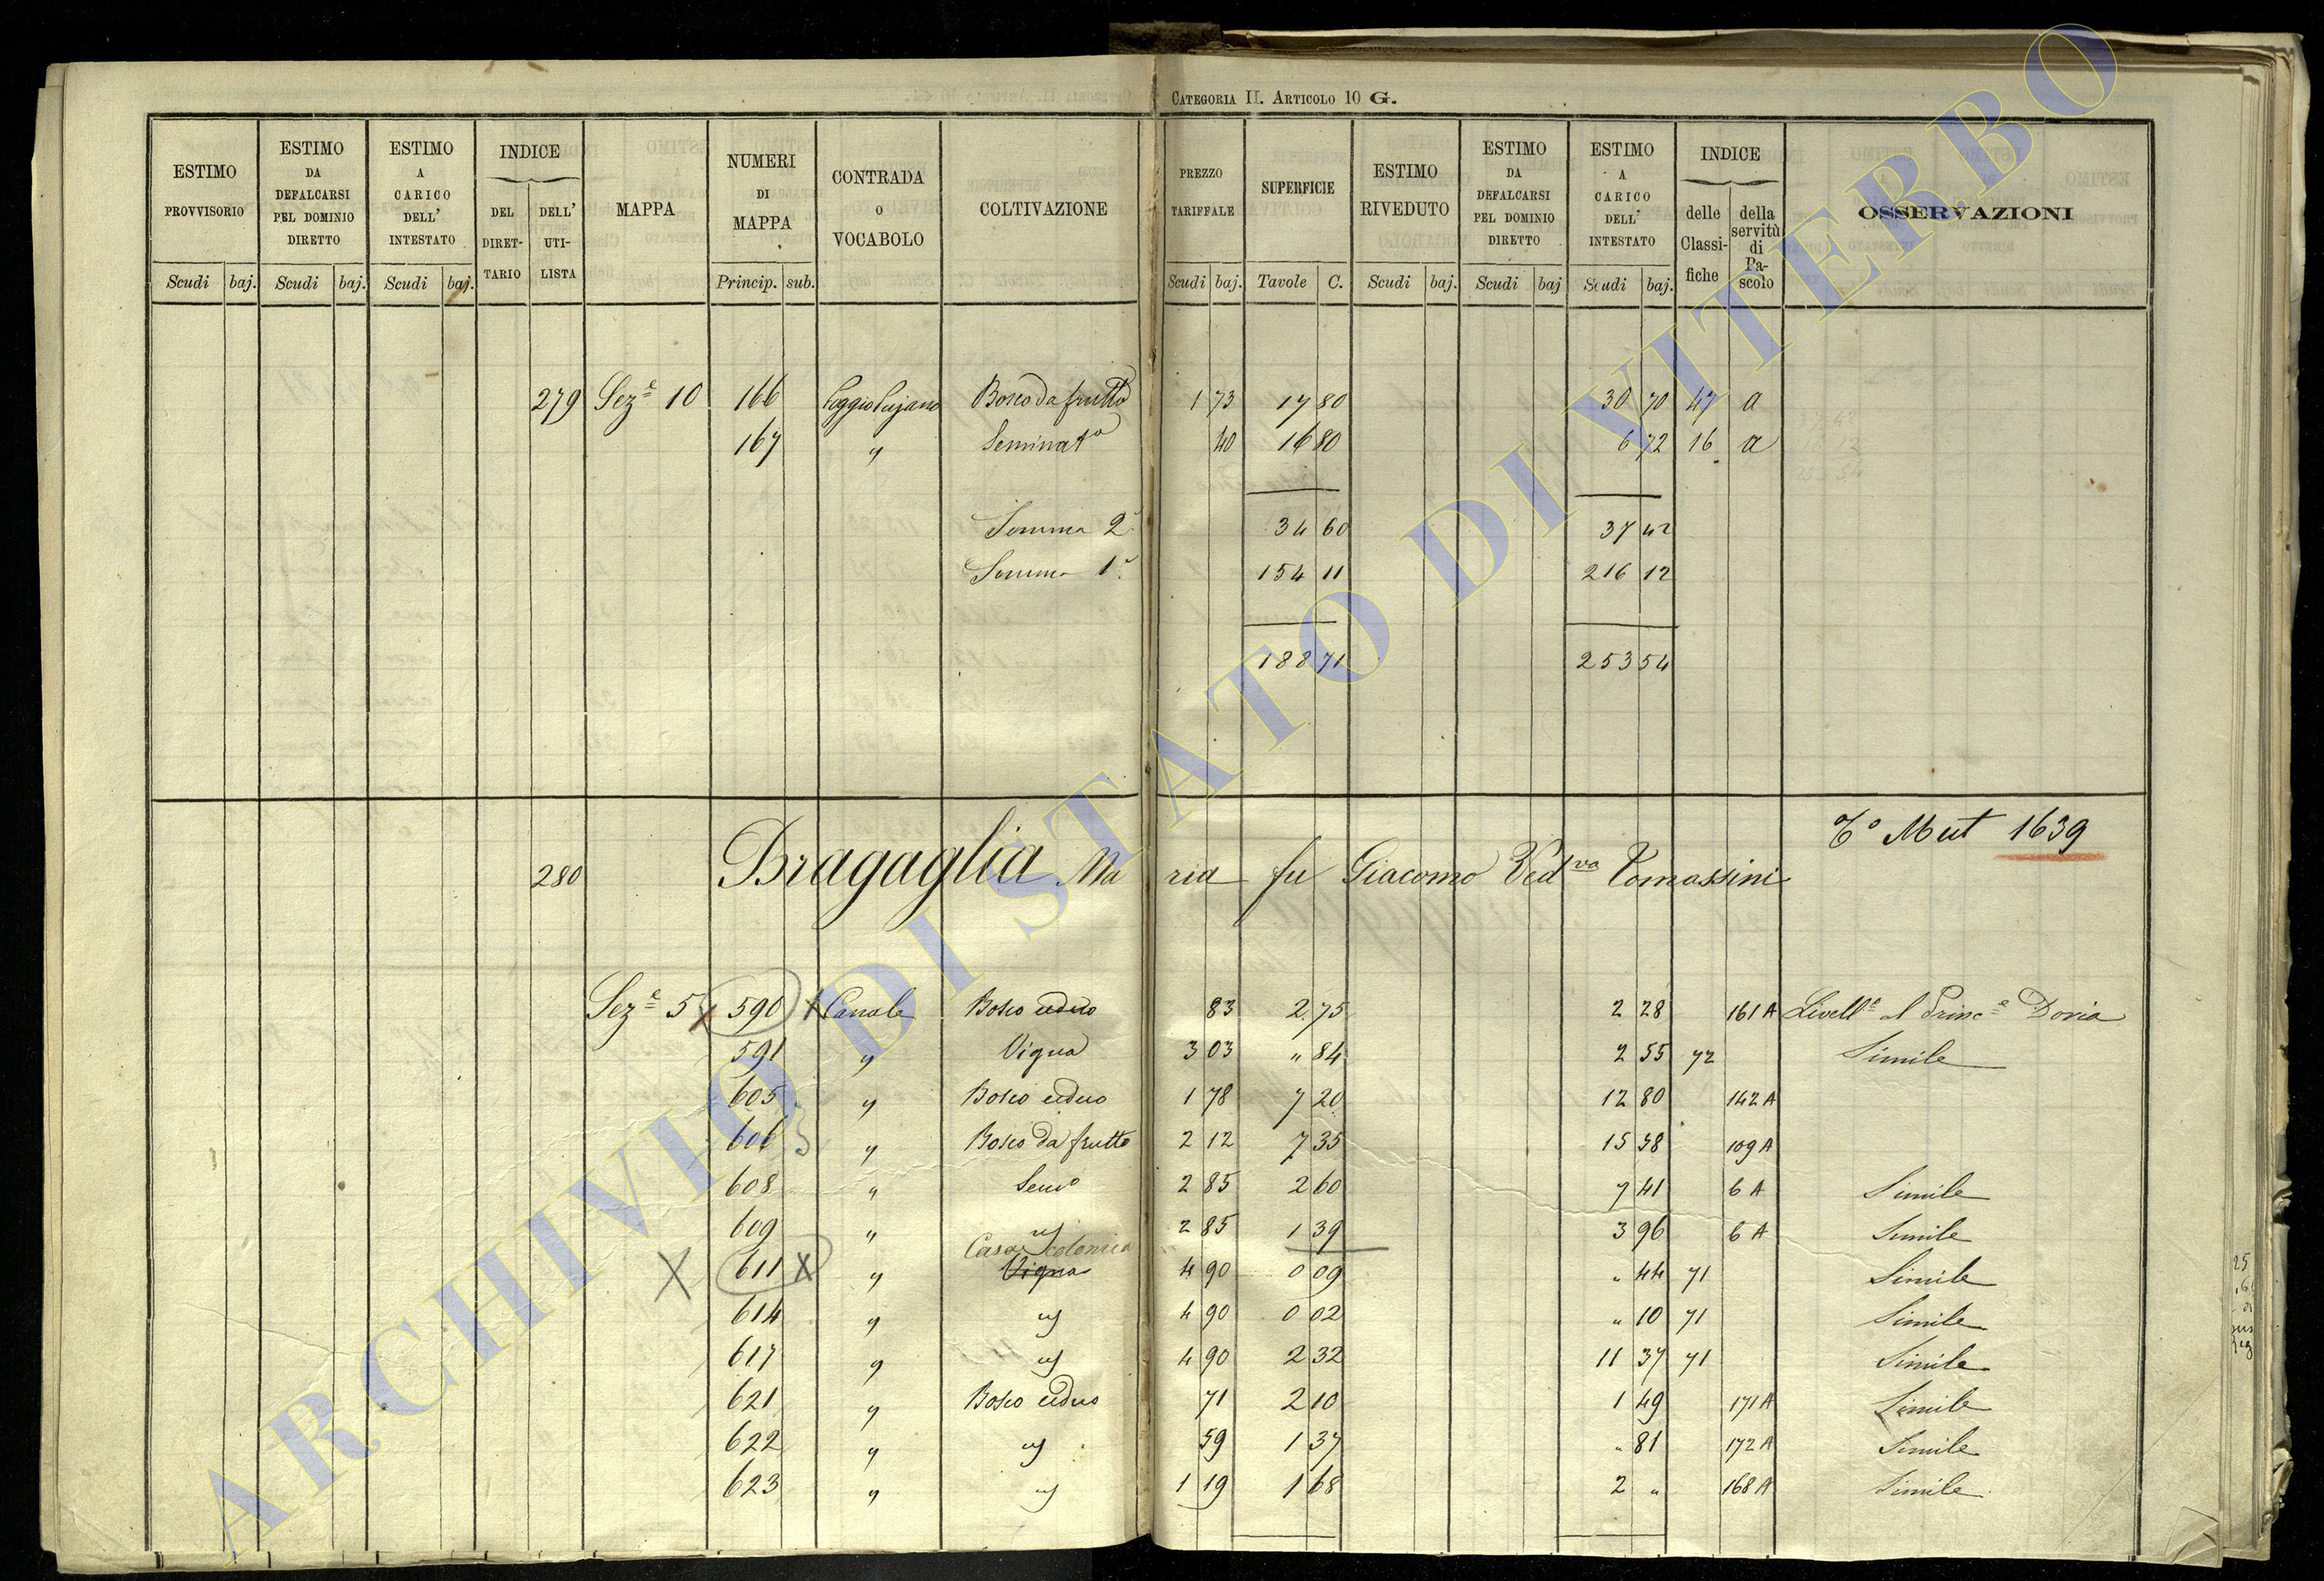 CATEGORIA II. ARTICOLO 10 G.
ESTIMO PROVVISORIO Scudi baj.
ESTIMO DA DEFALCARSI PEL DOMINIO DIRETTO Scudi baj.
ESTIMO A CARICO DELL' INTESTATO Scudi baj.
INDICE DEL DIRETTARIO DELL' UTILISTA
MAPPA
NUMERI DI MAPPA Princip. sub.
CONTRADA O VOCABOLO
COLTIVAZIONE
PREZZO TARIFFALE Scudi baj.
SUPERFICIE Tavole C.
ESTIMO RIVEDUTO Scudi baj.
ESTIMO DA DEFALCARSI PEL DOMINIO DIRETTO Scudi baj
ESTIMO A CARICO DELL' INTESTATO Scudi baj.
INDICE delle Classifiche della servitù di Pascolo
OSSERVAZIONI
279 Sez.e 10 166 Poggio Pujano Bosco da frutto 1 73 17 80 30 70 47 a
167 " Seminat.o 40 16 80 6 72 16 a
Somma 2ª 34 60 37 42
Somma 1ª 154 11 216 12
188 71 253 54
Mut 1639
280 Bragaglia Maria fu Giacomo Ved.va Tomassini
Sez.e 5 X 590 X Canale Bosco ceduo 83 2 75 2 28 161 A Livell.e al Princ.e Doria
591 " Vigna 3 03 " 84 2 55 72 Simile
605 " Bosco ceduo 1 78 7 20 12 80 142 A
606 " Bosco da frutto 2 12 7 35 15 58 109 A
608 " Sem.o 2 85 2 60 7 41 6 A Simile
609 " " 2 85 1 39 3 96 6 A Simile
Casa colonica
X 611 X " Vigna 4 90 0 09 " 44 71 Simile
614 " " 4 90 0 02 " 10 71 Simile
617 " " 4 90 2 32 11 37 71 Simile
621 " Bosco ceduo 71 2 10 1 49 171 A Simile
622 " " 59 1 37 " 81 172 A Simile
623 " " 1 19 1 68 2 " 168 A Simile
ARCHIVIO DI STATO DI VITERBO